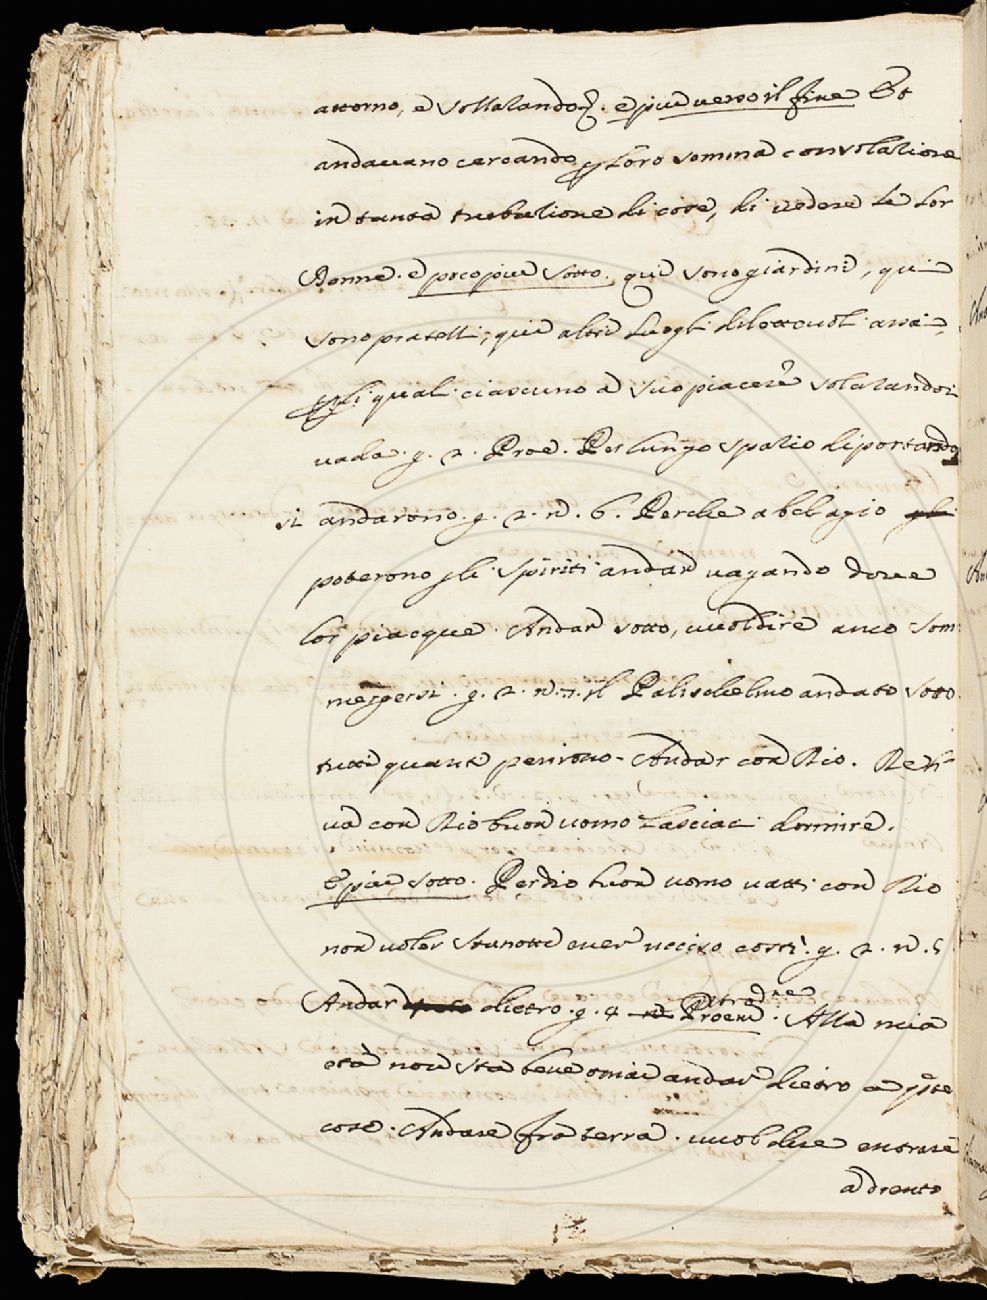 attorno, e sollazando. e più verso il fine Et
andauano cercando loro somma consolatione
in tanta trubulione di cose, di vedere le lor
Donne. e poco piue sotto. qui sono giardini, qui
sono pratelli, qui altri luoghi dilotteuoli assai,
li quali ciascuno a suo piacere solazandosi
vada. g. 2. Proe. Per lungo spazio diportando
si andarono. g. 2. n. 6. Perche a bel agio
poterono gli spiriti andar vagando doue
lor piacque. Andar sotto, vuol dire anco som
mergersi. g. 2. n. 7. il Palischelmo andato sotto
tutti quanti perirono. Andar con Dio. Deh
va con Dio buon uomo lasciaci dormire.
E piu sotto. Perdio buon uomo vatti con Dio
non voler stanotte esser ucciso costi. g. 2. n. 5
Andar dietro. g. 4 Proem. Alla mia
età non sta bene omai andar dietro a q.te
cose. Andare fra terra. vuol dire entrare
a drento